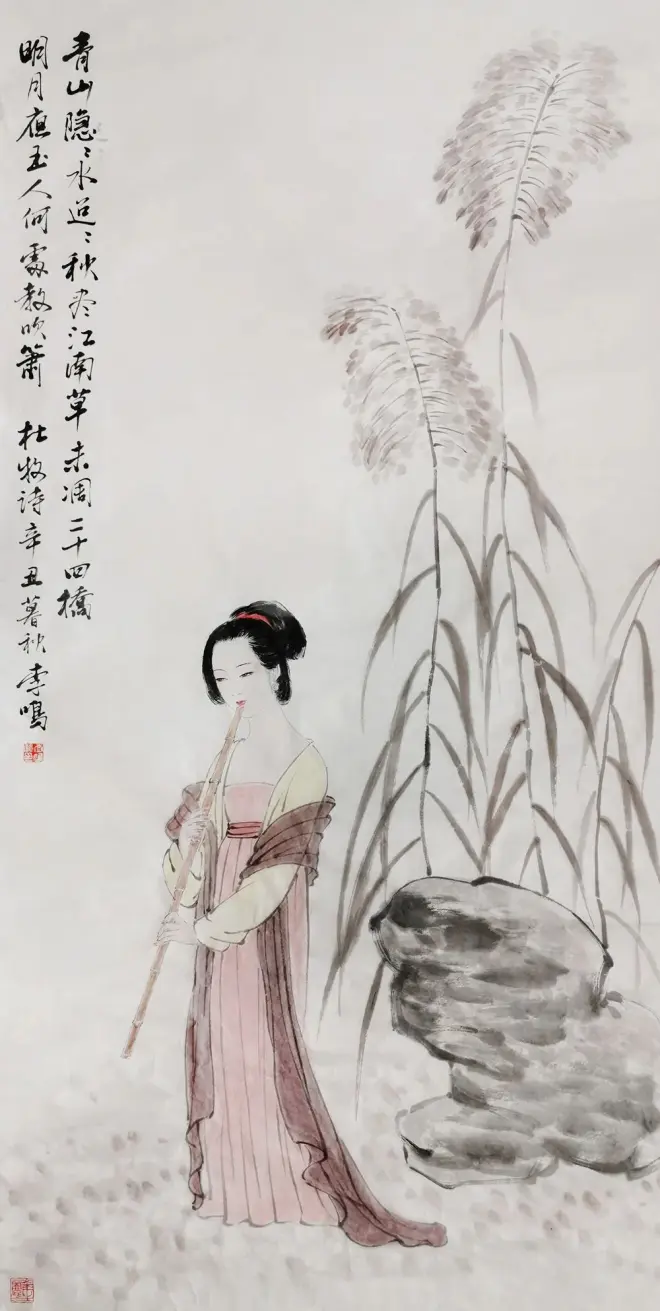 青山隐〻水迢〻秋尽江南草未凋二十四橋
明月夜玉人何處教吹箫 杜牧诗辛丑暮秋李鳴